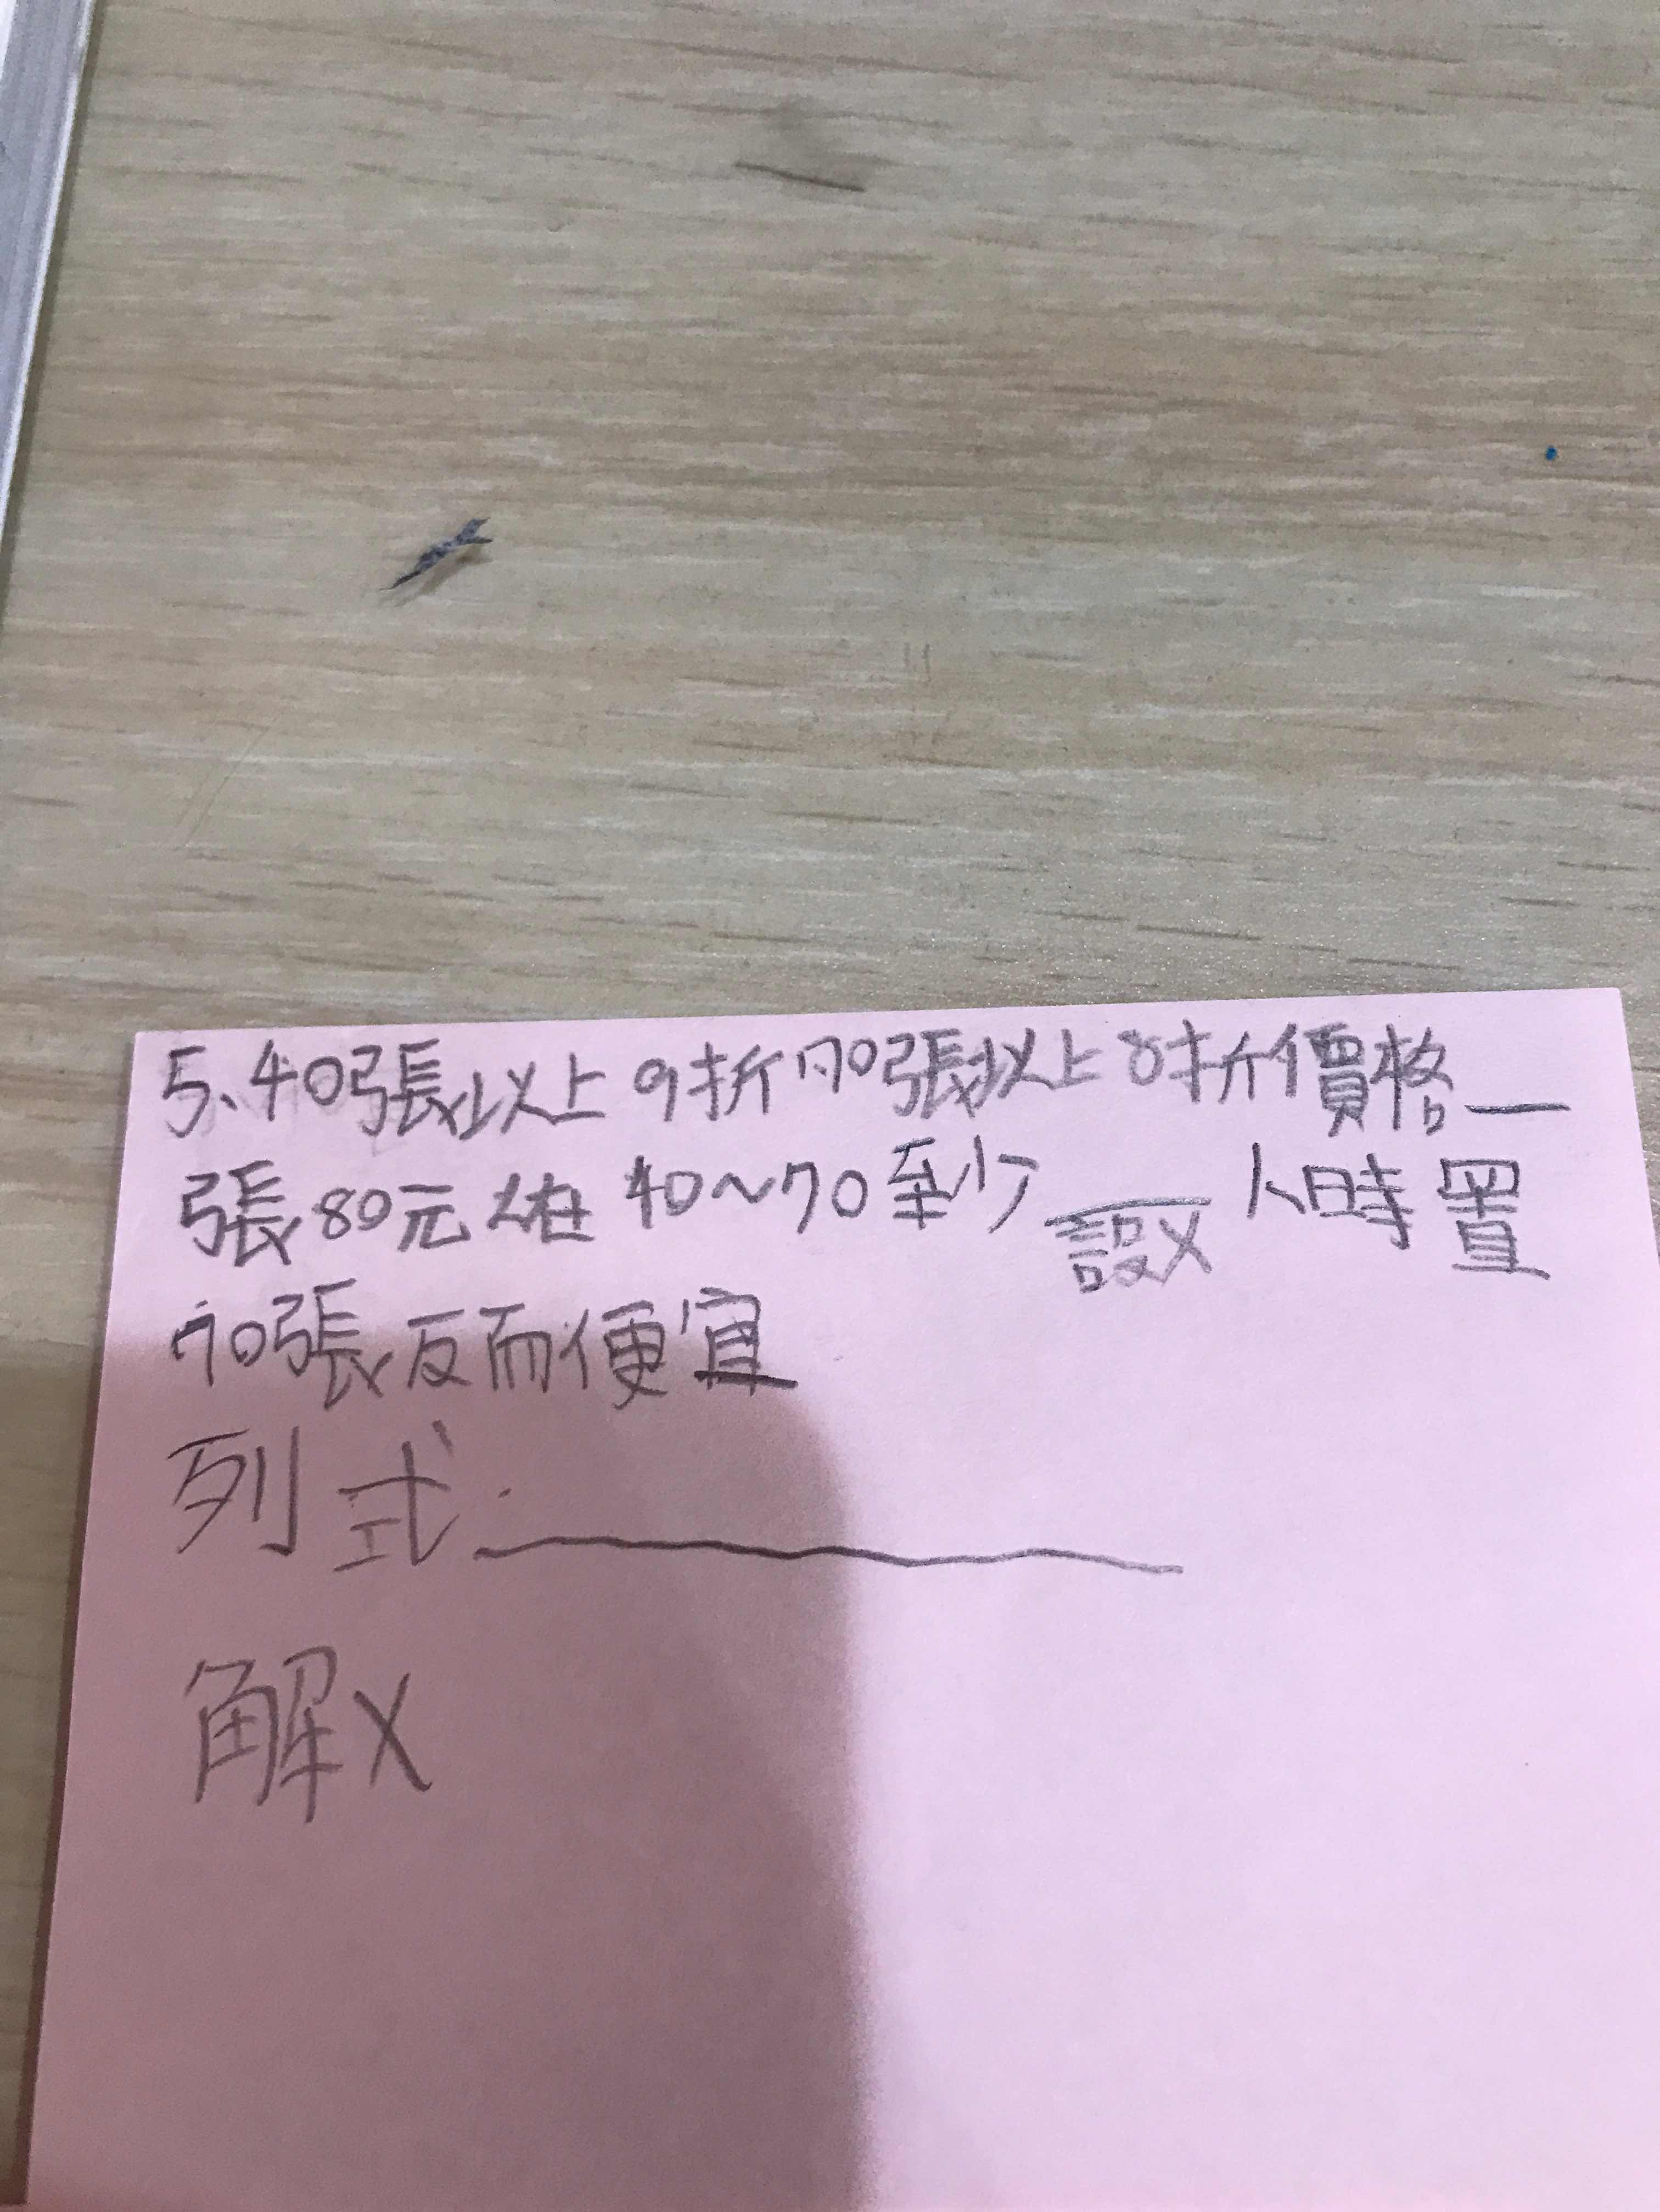 5、40張以上9折70張以上8折價格一
張80元在40~70至少___人時買
設X
70張反而便宜
列式:___________
解X